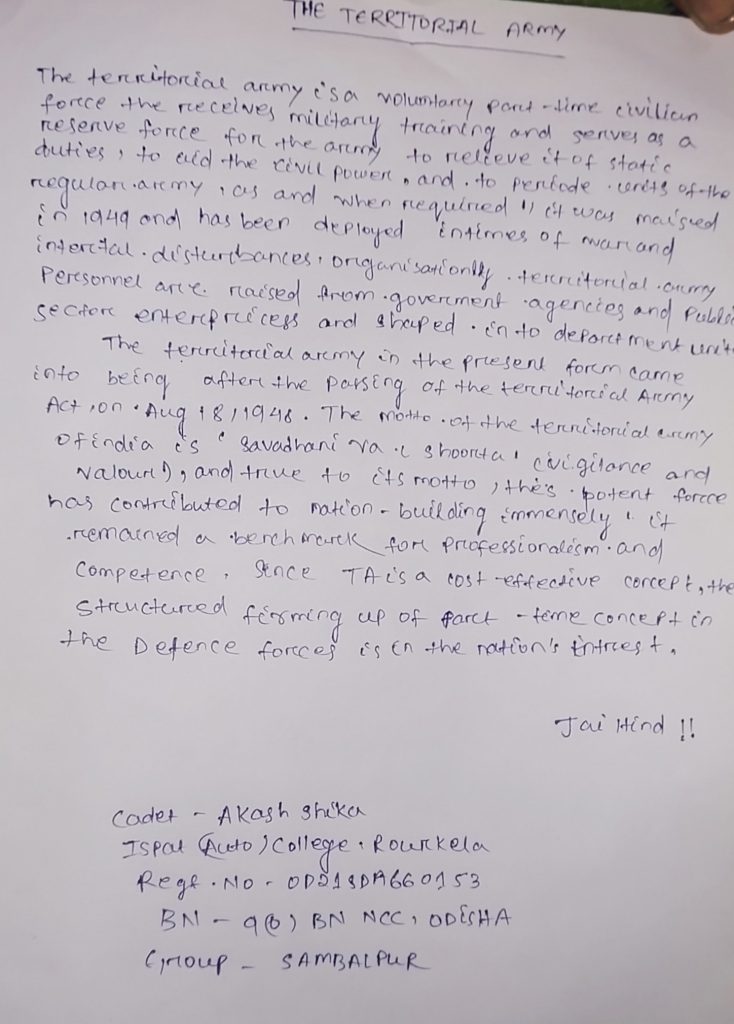 THE TERRITORIAL ARMY
The territorial army is a voluntary part-time civilian
force the receives military training and serves as a
reserve force for the army to relieve it of static
duties, to aid the civil power, and. to periode. units of the
regular. army, as and when required " it was raised
in 1949 and has been deployed intimes of war and
. disturbances, organisationlly. territorial. army
Personnel are. raised from. goverment. agencies and Public
sector enterpricess and shaped. in to department units
The territorial army in the present form came
into being after the passing of the territorial Army
Act, on. Aug 18, 1948. The motto. of the territorial army
of india is ' savadhani va shoorta' (vigilance and
valour), and true to its motto, this. potent force
has contributed to nation-building immensely. it
.remained a benchmark for professionalism. and
competence. Since TA is a cost-effective concept, the
structured firming up of part-time concept in
the Defence forces is in the nation's intrest.
Jai Hind !!
Cadet - Akash Shika
Ispat (Auto) College. Rourkela
Regt. No - OD21SDA660153
BN - 9(O) BN NCC, ODISHA
Group - SAMBALPUR